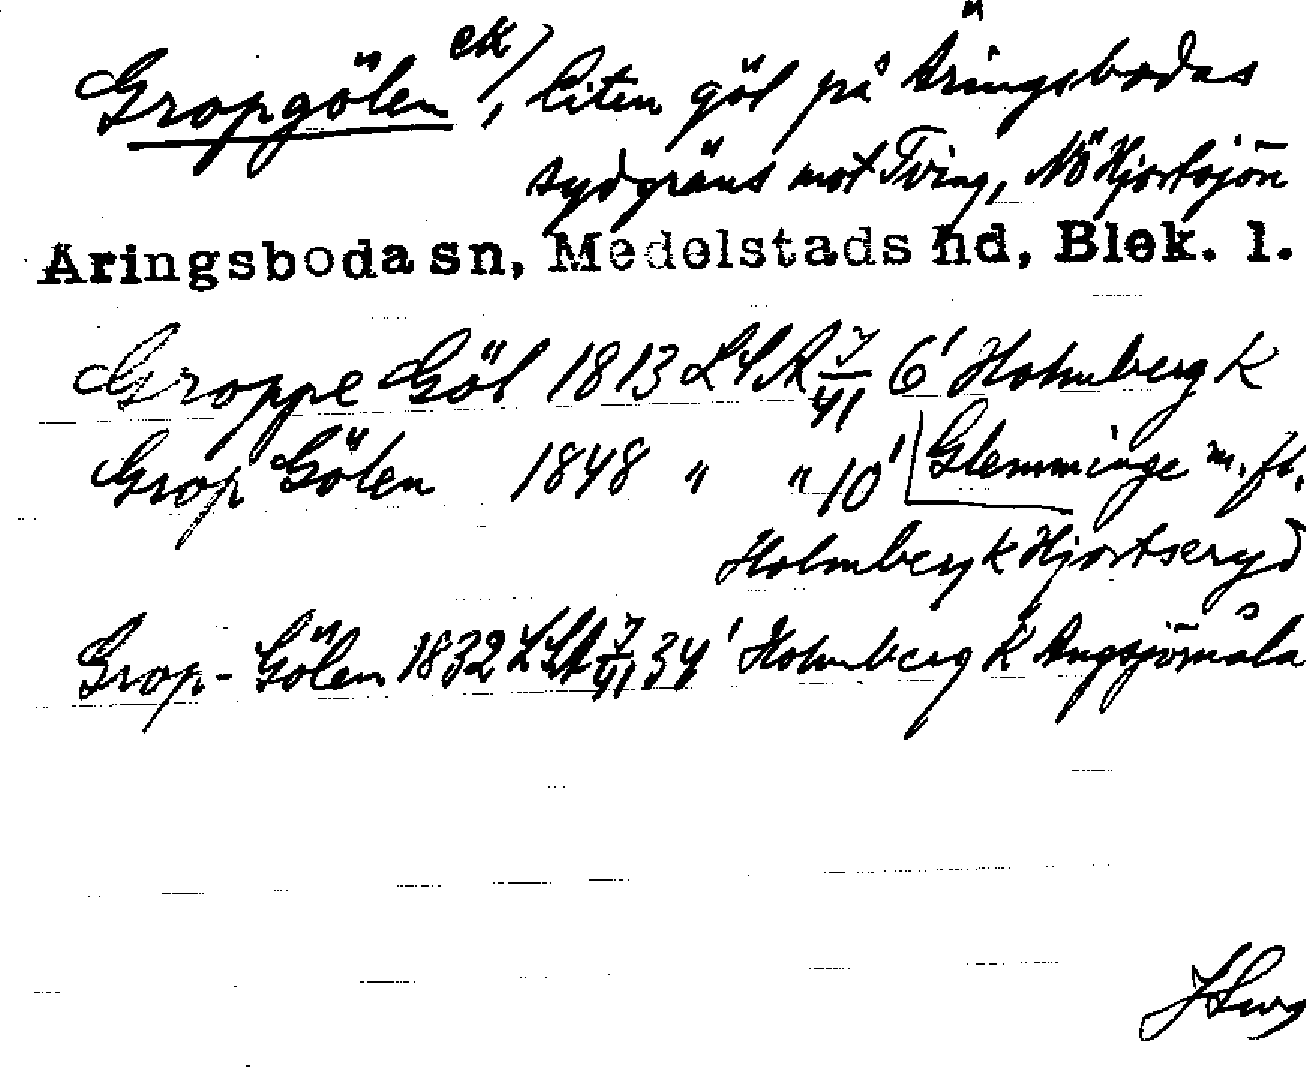 Gropgölen ek/, liten göl på Äringsbodas
sydgräns mot Tving, NÖ Hjortsjön
Äringsboda sn, Medelstads hd, Blek. l.
Groppe Göl 1813 LSA 7/41 6' Holmberg K
Grop Gölen 1848 " " 10' Glemminge m. fl.
Holmberg K Hjortseryd
Grop-Gölen 1832 LSA 7/41 34' Holmberg K Ängsjömåla